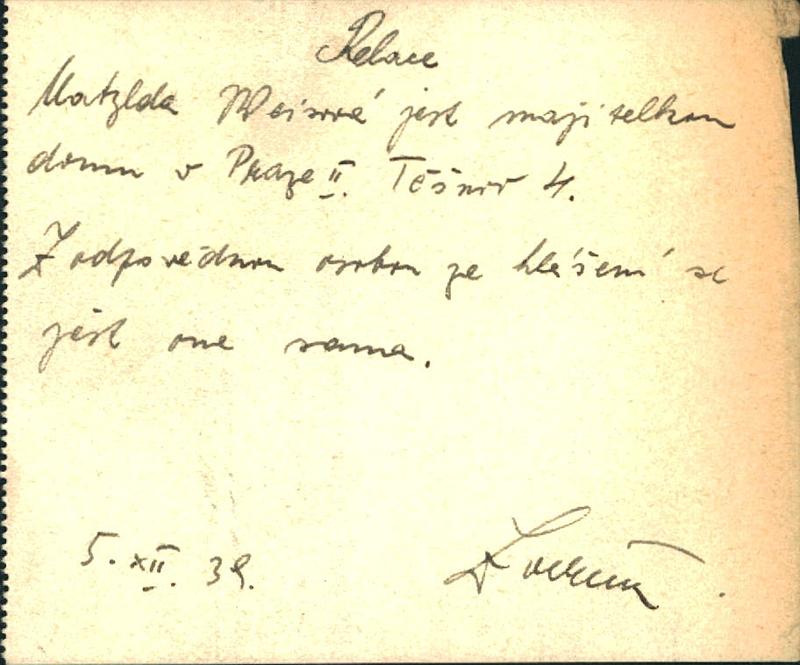 Relace
Matylda Weisová jest majitelkou
domu v Praze II. Těšnov 4.
Zodpovědnou osobou ze hlášení se
jest ona sama.
5. XII. 39.